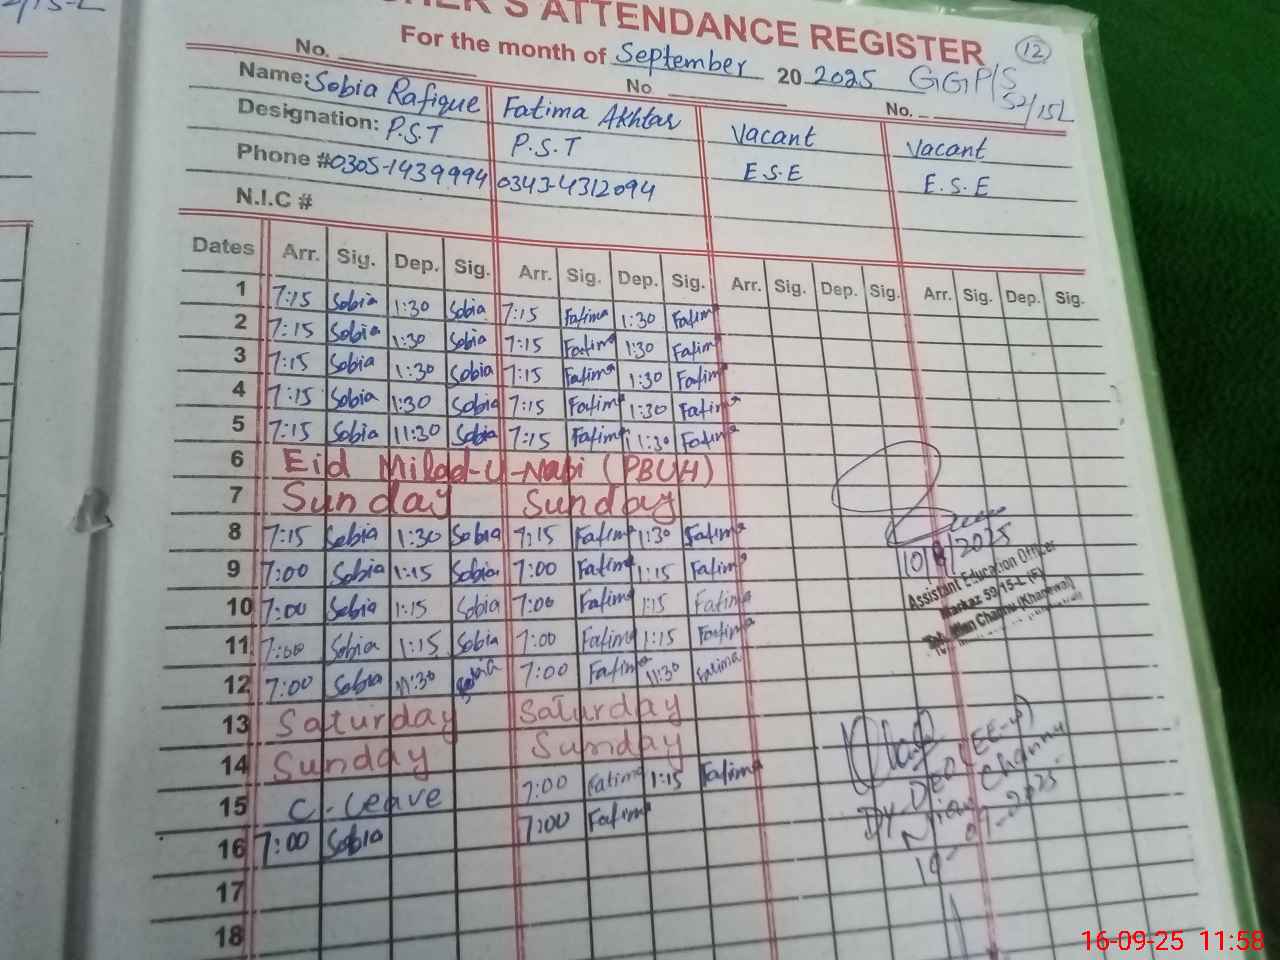 TEACHER'S ATTENDANCE REGISTER 12
For the month of September 20 2025 GGP/S 52/15L
No. No No.
Name: Sobia Rafique Fatima Akhtar Vacant Vacant
Designation: P.S.T P.S.T E.S.E E.S.E
Phone #0305-1439994 0343-4312094
N.I.C #
Dates Arr. Sig. Dep. Sig. Arr. Sig. Dep. Sig. Arr. Sig. Dep. Sig. Arr. Sig. Dep. Sig.
1 7:15 Sobia 1:30 Sobia 7:15 Fatima 1:30 Fatima
2 7:15 Sobia 1:30 Sobia 7:15 Fatima 1:30 Fatima
3 7:15 Sobia 1:30 Sobia 7:15 Fatima 1:30 Fatima
4 7:15 Sobia 1:30 Sobia 7:15 Fatima 1:30 Fatima
5 7:15 Sobia 11:30 Sobia 7:15 Fatima 11:30 Fatima
6 Eid Milad-U-Nabi (PBUH)
7 Sunday Sunday
8 7:15 Sobia 1:30 Sobia 7:15 Fatima 1:30 Fatima
10/9/2025
9 7:00 Sobia 1:15 Sobia 7:00 Fatima 1:15 Fatima
Assistant Education Officer
Markaz 59/15-L (F)
10 7:00 Sobia 1:15 Sobia 7:00 Fatima 1:15 Fatima
Teh. Mian Channu-Khanewal
11 7:00 Sobia 1:15 Sobia 7:00 Fatima 1:15 Fatima
12 7:00 Sobia 11:30 Sobia 7:00 Fatima 11:30 Fatima
13 Saturday Saturday
14 Sunday Sunday
15 C. Leave 7:00 Fatima 1:15 Fatima
Dy DEO (EE-W)
Mian Channu
16 7:00 Sobia 7:00 Fatima
17
18
16-09-25 11:58